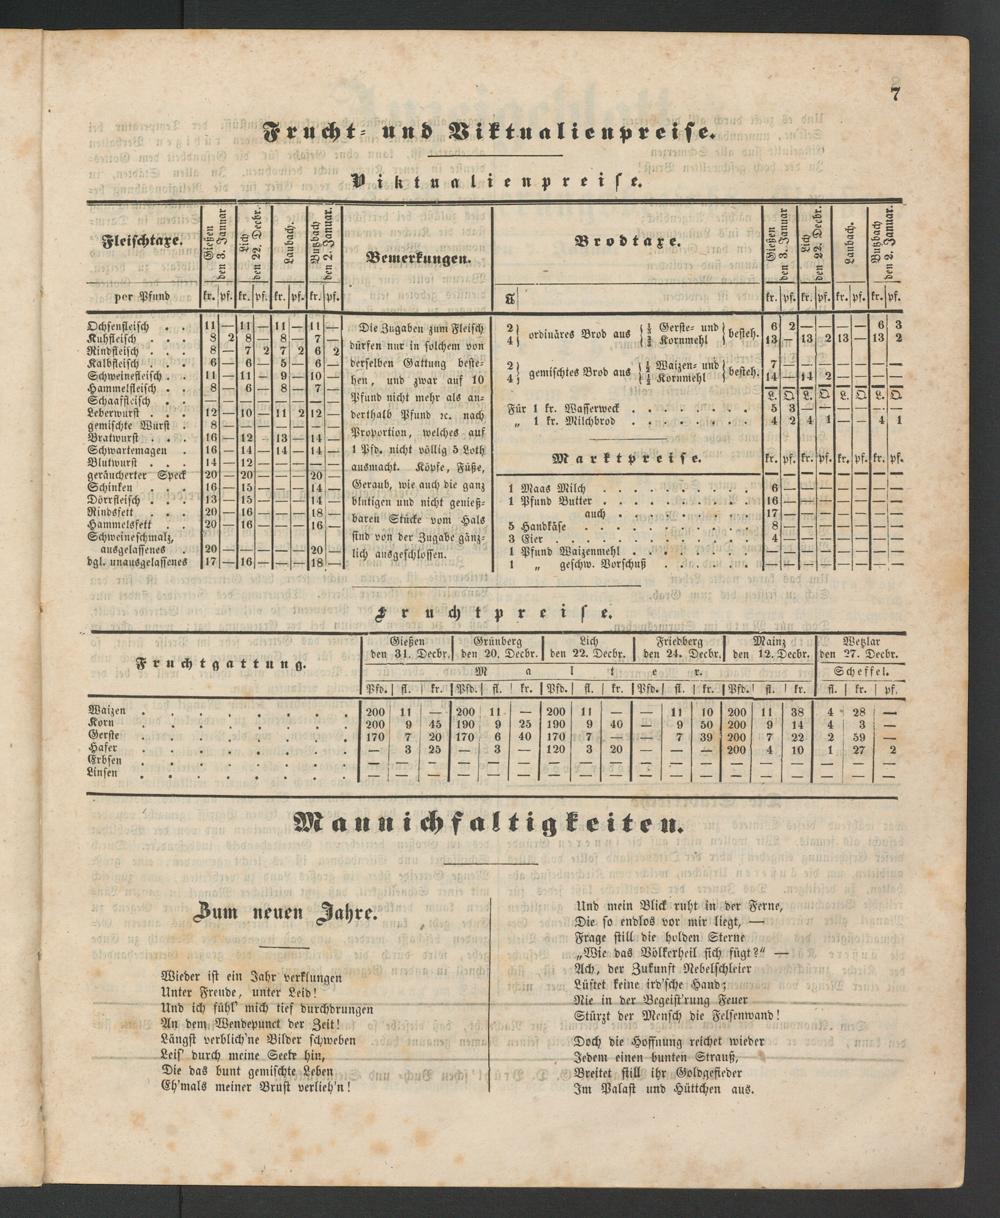 7
Frucht- und Viktualienpreise.
Viktualienpreise.
Fleischtaxe.
Gießen den 3. Januar
Lich den 22. Decbr.
Laubach.
Butzbach den 2. Januar.
Bemerkungen.
per Pfund kr. pf. kr. pf. kr. pf. kr. pf.
Ochsenfleisch . . 11 — 11 — 11 — 11 —
Kuhfleisch . . . 8 2 8 — 8 — 7 —
Rindfleisch . . . 8 — 7 2 7 2 6 2
Kalbfleisch . . . 6 — 6 — 5 — 6 —
Schweinefleisch . . 11 — 11 — 9 — 10 —
Hammelfleisch . . 8 — 6 — 8 — 7 —
Schaaffleisch . . — — — — — — — —
Leberwurst . . . 12 — 10 — 11 2 12 —
gemischte Wurst . 8 — — — — — — —
Bratwurst . . . 16 — 12 — 13 — 14 —
Schwartemagen . 16 — 14 — 14 — 14 —
Blutwurst . . . 14 — 12 — — — — —
geräucherter Speck 20 — 20 — — — 20 —
Schinken . . . 16 — 15 — — — 14 —
Dörrfleisch . . . 13 — 15 — — — 14 —
Rindsfett . . . 20 — 16 — — — 18 —
Hammelsfett . . 20 — 16 — — — 16 —
Schweineschmalz,
ausgelassenes . 20 — — — — — 20 —
dgl. unausgelassenes 17 — 16 — — — 18 —
Die Zugaben zum Fleisch
dürfen nur in solchem von
derselben Gattung beste-
hen, und zwar auf 10
Pfund nicht mehr als an-
derthalb Pfund ꝛc. nach
Proportion, welches auf
1 Pfd. nicht völlig 5 Loth
ausmacht. Köpfe, Füße,
Geraub, wie auch die ganz
blutigen und nicht genieß-
baren Stücke vom Hals
sind von der Zugabe gänz-
lich ausgeschlossen.
Brodtaxe.
Gießen den 3. Januar
Lich den 22. Decbr.
Laubach.
Butzbach den 2. Januar.
℔ kr. pf. kr. pf. kr. pf. kr. pf.
2 } ordinäres Brod aus { ⅓ Gerste- und } besteh. 6 2 — — — — 6 3
4 } { ⅔ Kornmehl } 13 — 13 2 13 — 13 2
2 } gemischtes Brod aus { ½ Waizen- und } besteh. 7 — — — — — — —
4 } { ½ Kornmehl } 14 — 14 2 — — — —
L. Q. L. Q. L. Q. L. Q.
Für 1 kr. Wasserweck . . . . . . . 5 3 — — — — — —
„ 1 kr. Milchbrod . . . . . . . 4 2 4 1 — — 4 1
Marktpreise. kr. pf. kr. pf. kr. pf. kr. pf.
1 Maas Milch . . . . . . . . . 6 — — — — — — —
1 Pfund Butter . . . . . . . . 16 — — — — — — —
auch . . . . . . . . 17 — — — — — — —
5 Handkäse . . . . . . . . . . 8 — — — — — — —
3 Eier . . . . . . . . . . . . 4 — — — — — — —
1 Pfund Waizenmehl . . . . . . . — — — — — — — —
1 „ geschw. Vorschuß . . . . . — — — — — — — —
Fruchtpreise.
Fruchtgattung.
Gießen Grünberg Lich Friedberg Mainz Wetzlar
den 31. Decbr. den 20. Decbr. den 22. Decbr. den 24. Decbr. den 12. Decbr. den 27. Decbr.
Malter. Scheffel.
Pfd. fl. kr. Pfd. fl. kr. Pfd. fl. kr. Pfd. fl. kr. Pfd. fl. kr. fl. kr. pf.
Waizen . . . . . . 200 11 — 200 11 — 200 11 — — 11 10 200 11 38 4 28 —
Korn . . . . . . 200 9 45 190 9 25 190 9 40 — 9 50 200 9 14 4 3 —
Gerste . . . . . . 170 7 20 170 6 40 170 7 — — 7 39 200 7 22 2 59 —
Hafer . . . . . . — 3 25 — 3 — 120 3 20 — — — 200 4 10 1 27 2
Erbsen . . . . . . — — — — — — — — — — — — — — — — — —
Linsen . . . . . . — — — — — — — — — — — — — — — — — —
Mannichfaltigkeiten.
Zum neuen Jahre.
Wieder ist ein Jahr verklungen
Unter Freude, unter Leid!
Und ich fühl' mich tief durchdrungen
An dem Wendepunct der Zeit!
Längst verblich'ne Bilder schweben
Leis' durch meine Seele hin,
Die das bunt gemischte Leben
Eh'mals meiner Brust verlieh'n!
Und mein Blick ruht in der Ferne,
Die so endlos vor mir liegt, —
Frage still die holden Sterne
„Wie das Völkerheil sich fügt?“ —
Ach, der Zukunft Nebelschleier
Lüftet keine ird'sche Hand;
Nie in der Begeist'rung Feuer
Stürzt der Mensch die Felsenwand!
Doch die Hoffnung reichet wieder
Jedem einen bunten Strauß,
Breitet still ihr Goldgefieder
Im Palast und Hüttchen aus.